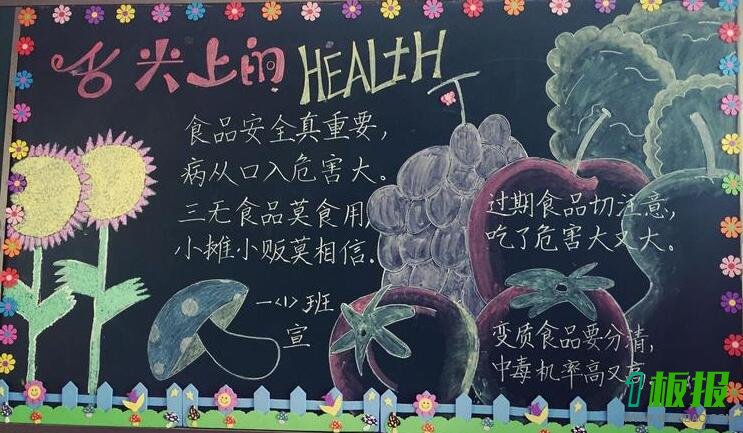 舌尖上的 HEALTH
食品安全真重要,
病从口入危害大。
三无食品莫食用,
小摊小贩莫相信.
一<1>班
宣
过期食品切注意,
吃了危害大又大。
变质食品要分清,
中毒机率高又
板报